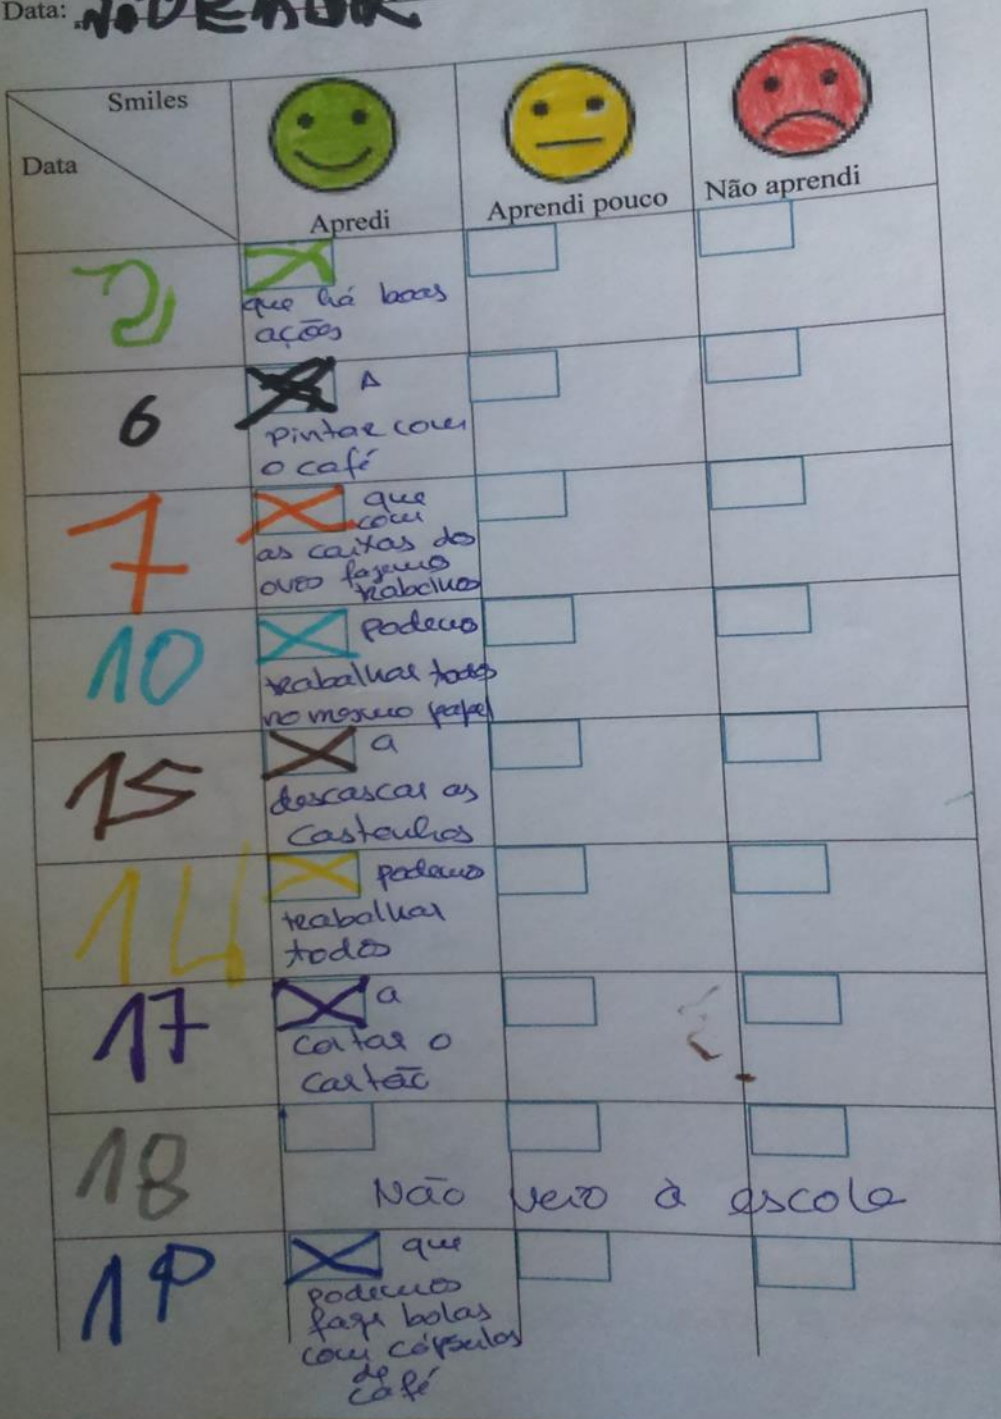 Data:
Smiles
Data
Apredi
Aprendi pouco
Não aprendi
que há boas
ações
6
A
pintar com
o café
7
que
com
as caixas dos
ovos fazemos
trabalhos
10
podemos
trabalhar todos
no mesmo papel
15
a
descascar as
castanhas
14
podemos
trabalhar
todos
17
a
cortar o
cartão
18
Não veio à escola
19
que
podemos
fazer bolas
com cápsulas
de
café